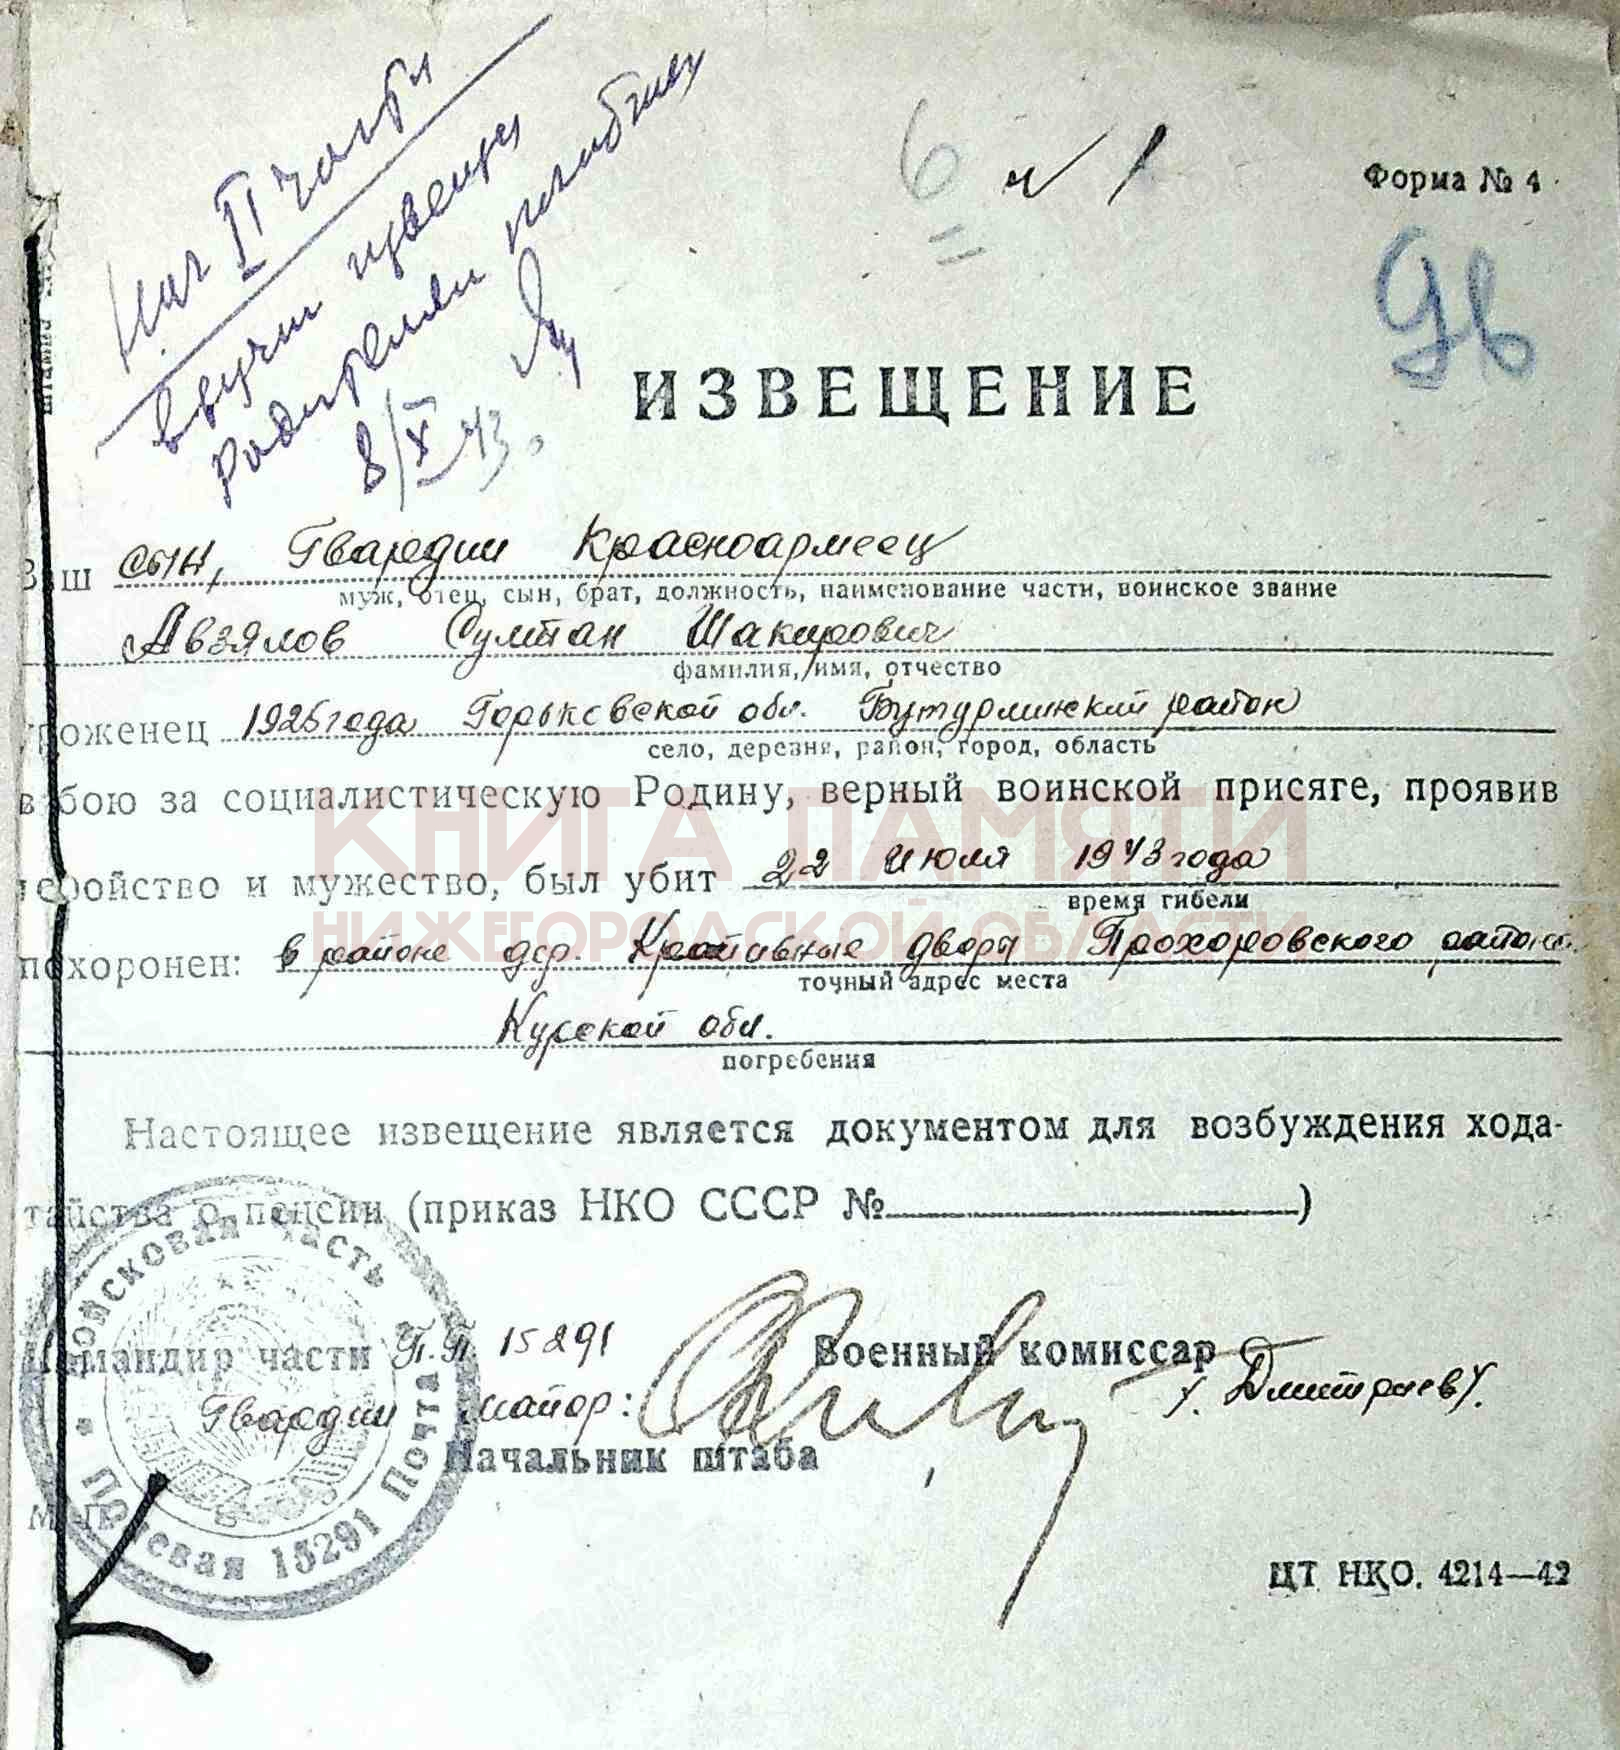 Нач II части
вручи извещен
родителям погибших
8/X 43.
6 и 1
Форма № 4
ИЗВЕЩЕНИЕ
Ваш сын, Гвардии Красноармеец
муж, отец, сын, брат, должность, наименование части, воинское звание
Авзялов Султан Шакирович
фамилия, имя, отчество
уроженец 1925 года Горьковской обл. Бутурлинский район
село, деревня, район, город, область
в бою за социалистическую Родину, верный воинской присяге, проявив
КНИГА ПАМЯТИ
геройство и мужество, был убит 22 Июля 1943 года
время гибели
НИЖЕГОРОДСКОЙ ОБЛАСТИ
похоронен: в районе дер. дворы Прохоровского района
точный адрес места
Курской обл.
погребения
Настоящее извещение является документом для возбуждения хода-
тайства о пенсии (приказ НКО СССР №)
Войсковая часть
Полевая Почта 15291
Командир части П.П. 15291
Военный комиссар
Гвардии майор:
/. Дмитриев/.
Начальник штаба
М. П.
ЦТ НКО. 4214—42